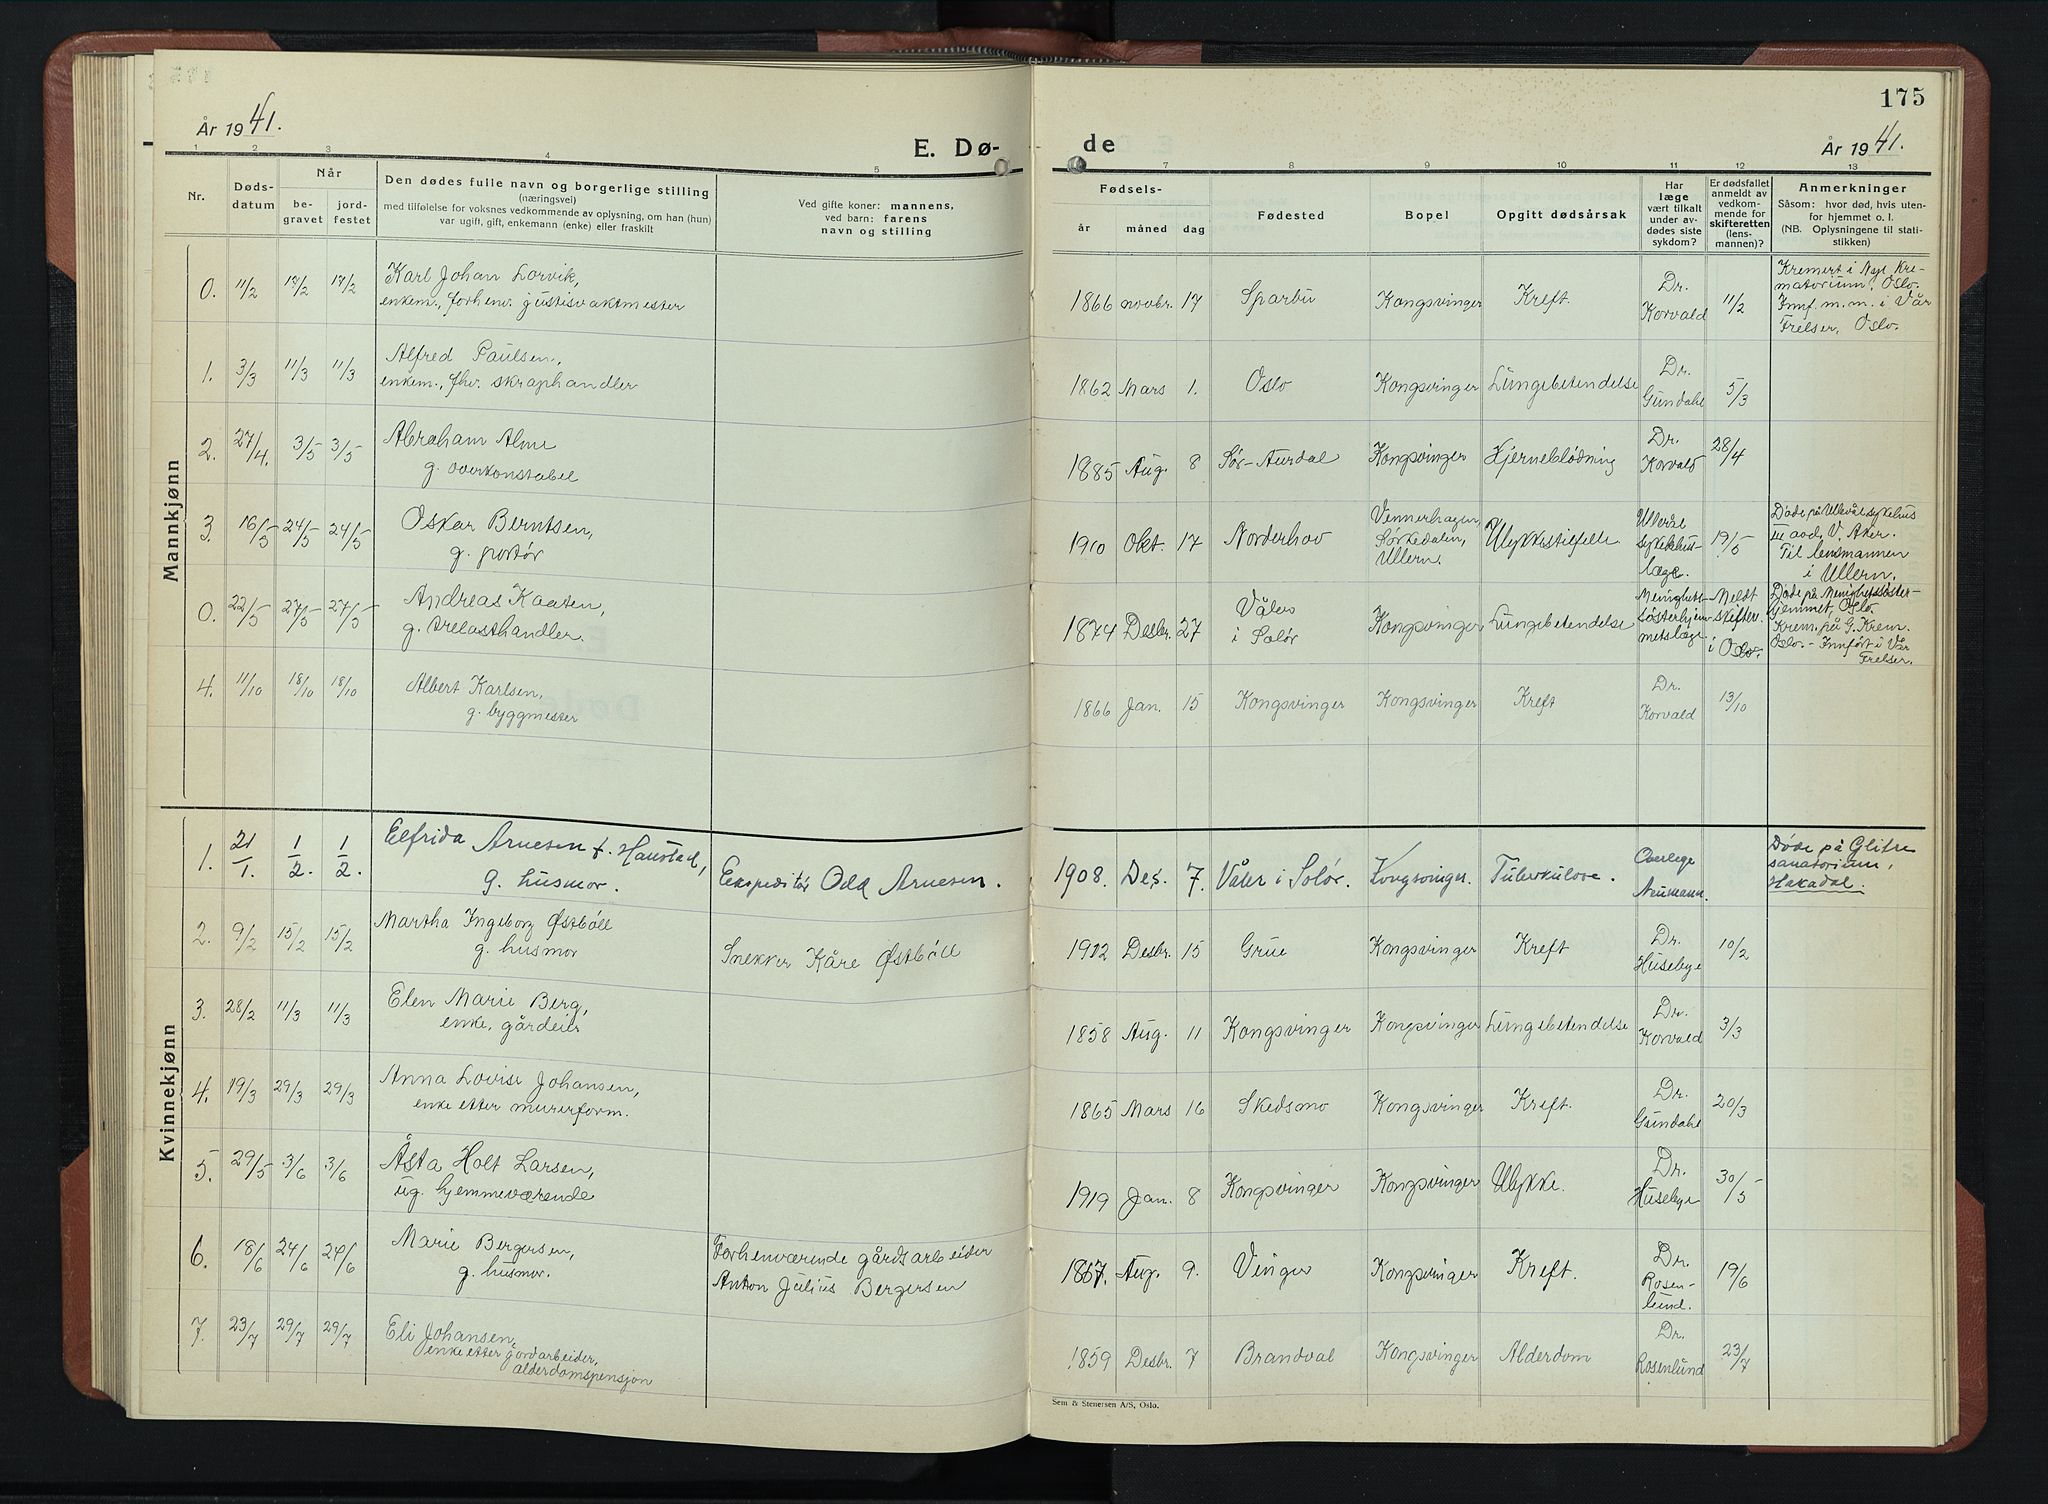 175
År 1941.
E. Dø-
de
År 1941.
1 2 3 4 5 7 8 9 10 11 12 13
Nr.
Døds-
datum
Når
be-
gravet
jord-
festet
Den dødes fulle navn og borgerlige stilling
(næringsvei)
med tilføielse for voksnes vedkommende av oplysning, om han (hun)
var ugift, gift, enkemann (enke) eller fraskilt
Ved gifte koner: mannens,
ved barn: farens
navn og stilling
Fødsels-
år måned dag
Fødested
Bopel
Opgitt dødsårsak
Har
læge
vært tilkalt
under av-
dødes siste
sykdom?
Er dødsfallet
anmeldt av
vedkom-
mende for
skifteretten
(lens-
mannen)?
Anmerkninger
Såsom: hvor død, hvis uten-
for hjemmet o. l.
(NB. Oplysningene til stati-
stikken)
Mannkjønn
0. 11/2 17/2 17/2 Karl Johan Lorvik,
enkem., forhenv. justisvaktmester
1866 novbr. 17 Sparbu Kongsvinger Kreft. Dr.
Korvald 11/2
Kremert i Nye Kre-
matorium, Oslo.
Innf. m.m. i Vår
Frelser, Oslo.
1. 3/3 11/3 11/3 Alfred Paulsen,
enkem., fhv. skraphandler
1862 Mars 1. Oslo Kongsvinger Lungebetendelse Dr.
Gundahl 5/3
2. 27/4. 3/5 3/5 Abraham Alme
g. overkonstabel
1885 Aug. 8 Sør-Aurdal Kongsvinger Hjerneblødning Dr.
Korvald 28/4
3. 16/5 24/5 24/5 Oskar Berntsen,
g. portør
1910 Okt. 17 Norderhov
Vennerhagen,
Sørkedalen,
Ullern.
Ulykkestilfelle.
sykehus-
læge.
19/5
Døde på Ullevål sykehus
III avd, V. Aker.
Til lensmannen
i Ullern.
0. 22/5 27/5 27/5 Andreas Kaaten,
g. trelasthandler.
1874 Desbr. 27 Våler
i Solør
Kongsvinger Lungebetendelse
Menighets-
søsterhjem-
metslæge
Meldt
skifter.
i Oslo.
Døde på Menighetssøster-
hjemmet, Oslo
Krem. på G. Krem.
Oslo. - Innført i Vår
Frelser.
4. 11/10 18/10 18/10 Albert Karlsen,
g. byggmester
1866 Jan. 15 Kongsvinger Kongsvinger Kreft Dr.
Korvald 13/10
Kvinnekjønn
1. 21/1. 1/2. 1/2. Elfrida Arnesen f. Haustad,
g. husmor.
Ekspeditør Odd Arnesen.
1908. Des. 7. Våler i Solør. Kongsvinger. Tuberkulose. Overlege
Neumann.
Døde på Glitre
sanatorium,
Hakadal.
2. 9/2 15/2 15/2 Martha Ingeborg Østbøll
g. husmor
Snekker Kåre Østbøll
1912 Desbr. 15 Grue Kongsvinger Kreft Dr.
Husebye 10/2
3. 28/2 11/3 11/3 Elen Marie Berg,
enke, gårdeier
1858 Aug. 11 Kongsvinger Kongsvinger Lungebetendelse Dr.
Korvald 3/3
4. 19/3 29/3 29/3 Anna Lovise Johansen,
enke etter murerform.
1865 Mars 16 Skedsmo Kongsvinger Kreft. Dr.
Gundahl 20/3
5. 29/5 3/6 3/6 Åsta Holt Larsen,
ug. hjemmeværende
1919 Jan. 8 Kongsvinger Kongsvinger Ulykke. Dr.
Husebye 30/5
6. 18/6 24/6 24/6 Marie Bergersen,
g. husmor.
Forhenværende gårdsarbeider
Anton Julius Bergersen
1867. Aug. 9. Vinger Kongsvinger Kreft. Dr.
Rosen-
lund. 19/6
7. 23/7 29/7 29/7 Eli Johansen,
enke etter jordarbeider,
alderdomspensjon
1859 Desbr. 7 Brandval Kongsvinger Alderdom Dr.
Rosenlund 23/7
Sem & Stenersen A/S, Oslo.